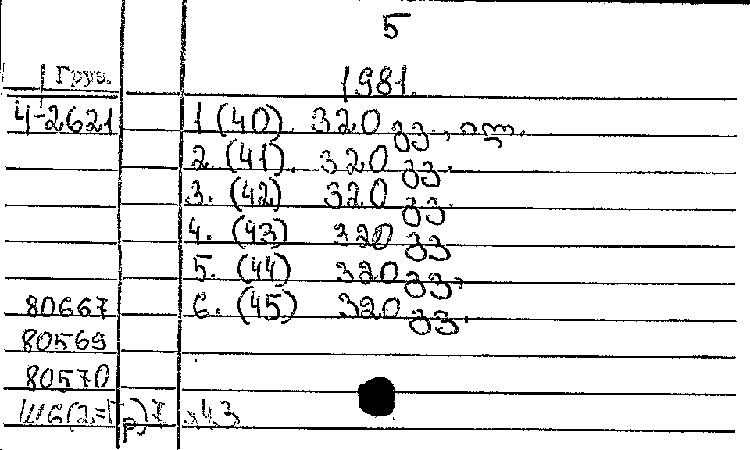 5
Груз. 1981.
4-2621 1 (40). 320 გვ., ილ.
2. (41). 320 გვ.
3. (42) 320 გვ.
4. (43) 320 გვ
5. (44) 320 გვ.
80667 6. (45) 320 გვ.
80569
80570